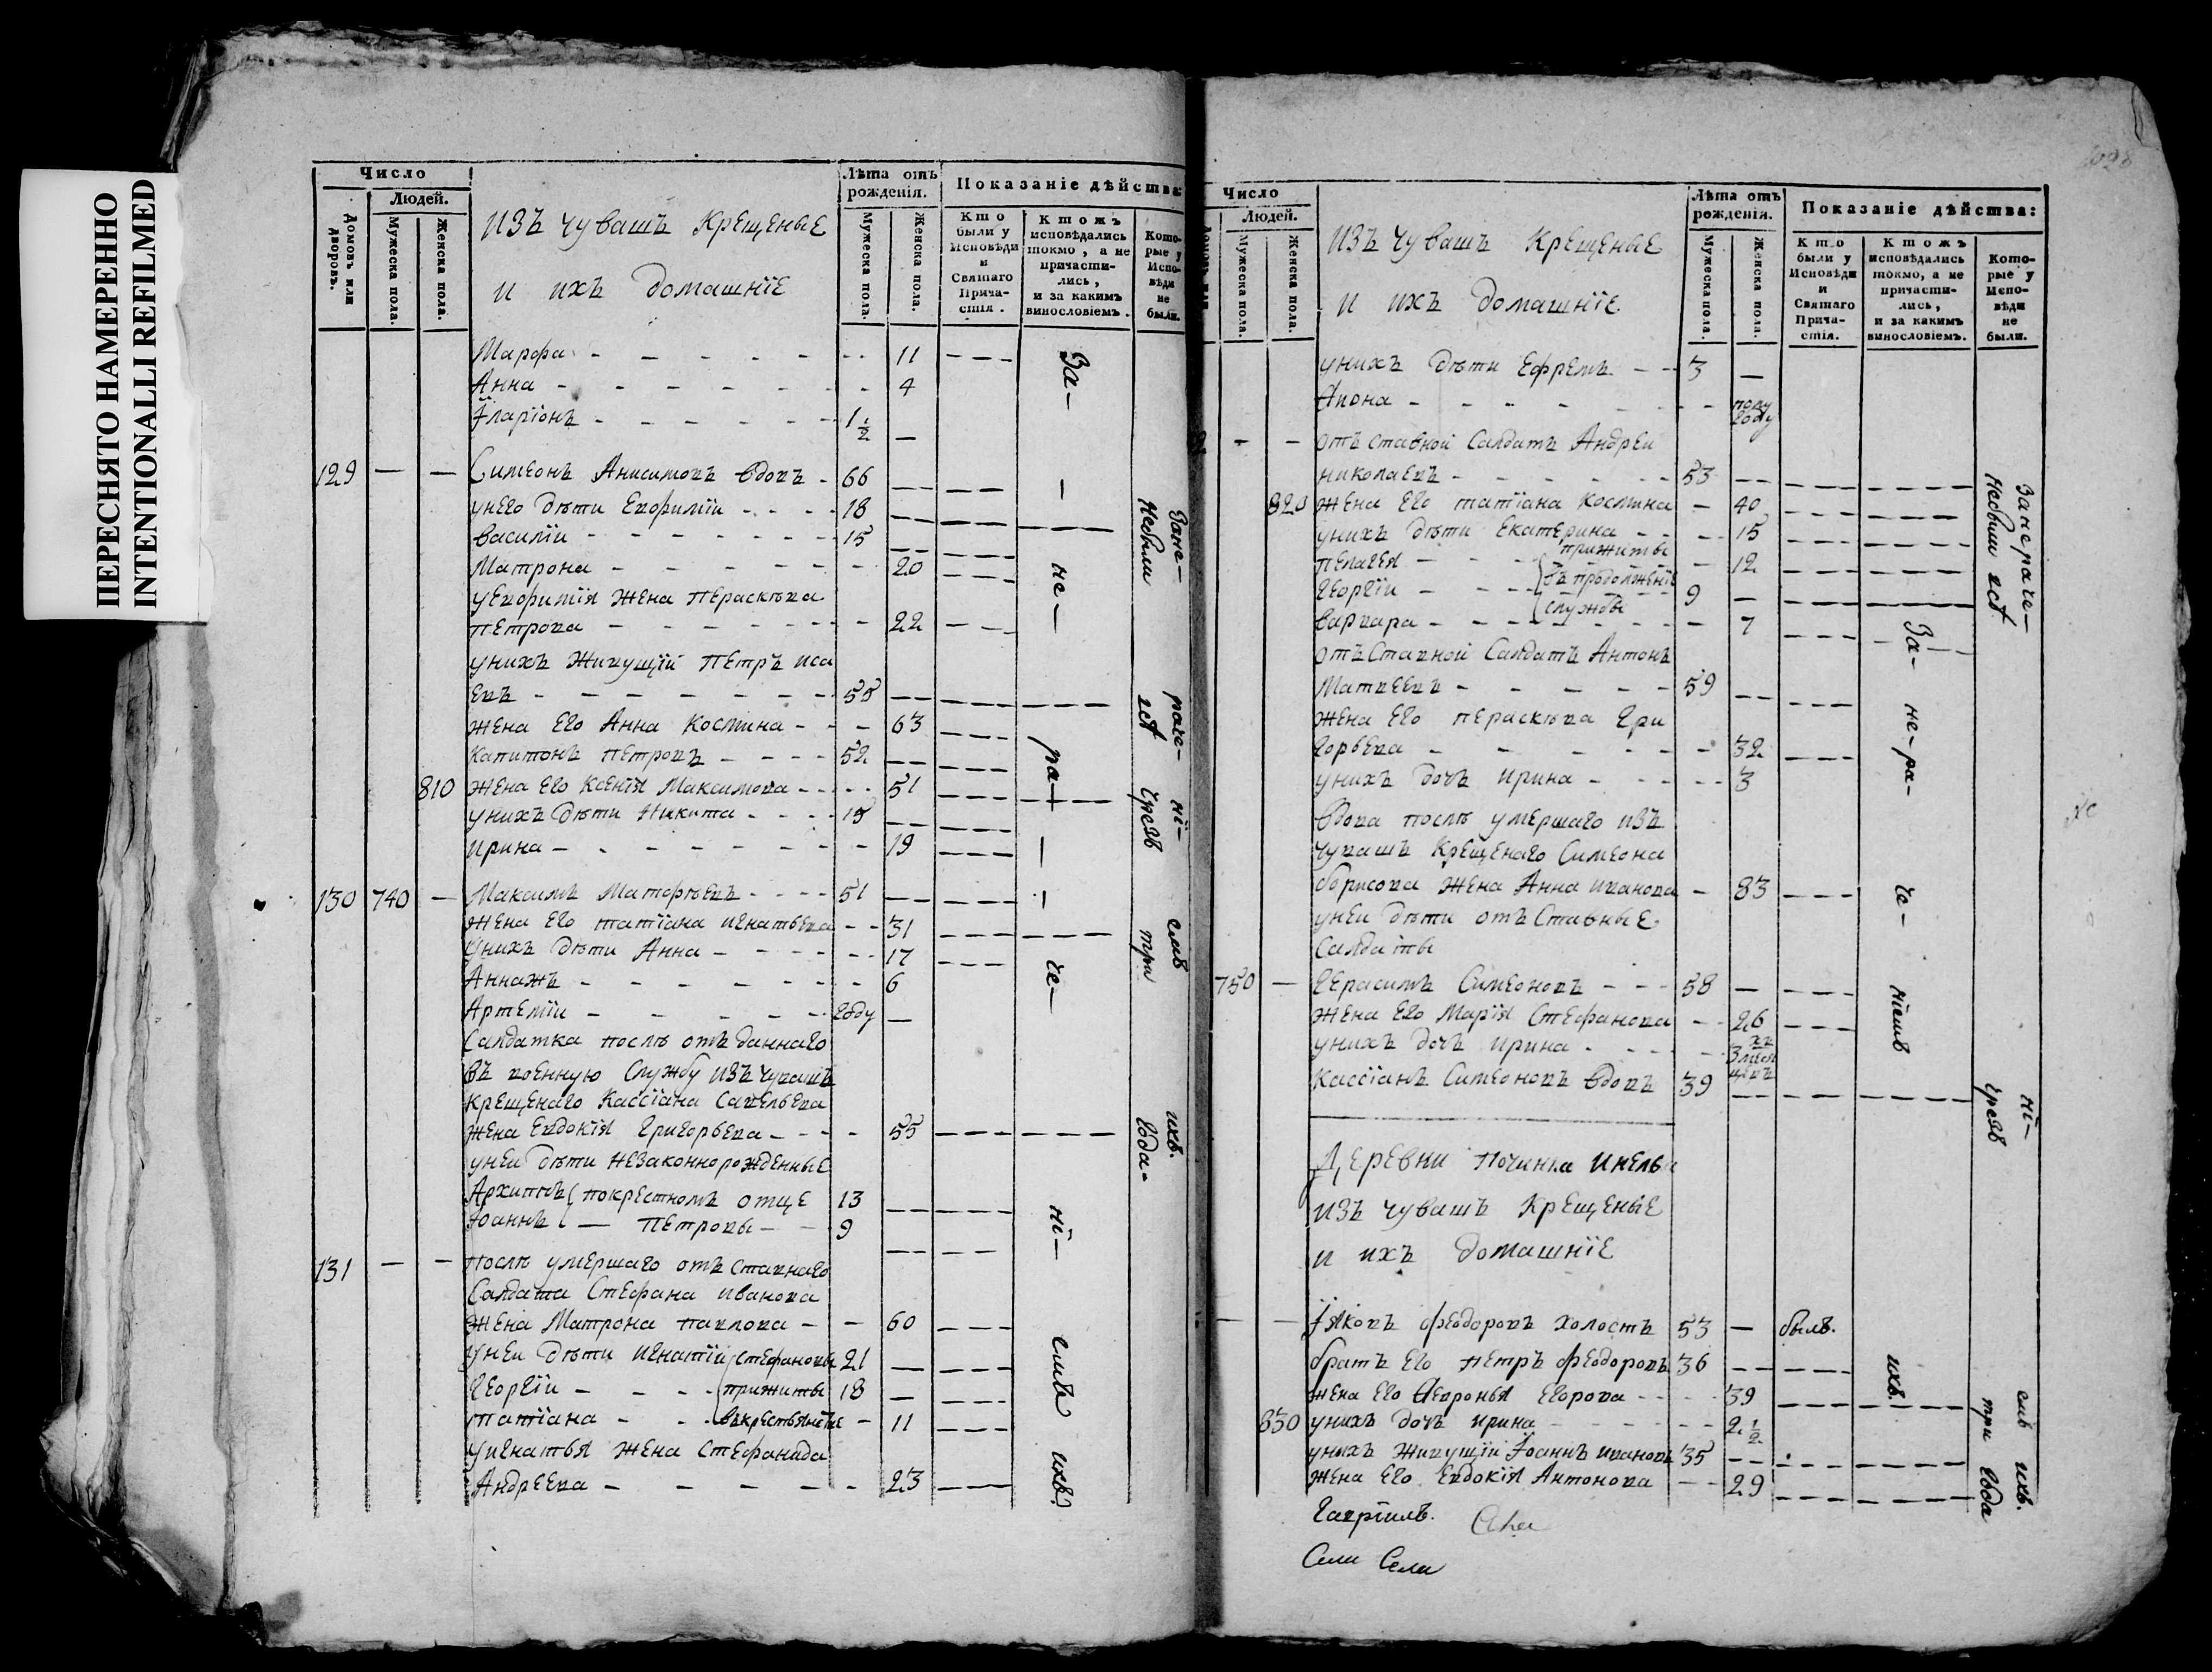 ПЕРЕСНЯТО НАМЕРЕННО
INTENTIONALLI REFILMED
Число
Людей.
Домовъ или дворовъ.
Мужеска пола.
Женска пола.
изъ чувашъ крещеные
и ихъ домашніе
Лѣта отъ рожденія.
Мужеска пола.
Женска пола.
Показаніе дѣйства:
Кто были у Исповѣди и Святаго Причастія.
Ктожъ исповѣдались токмо, а не причастились, и за какимъ винословіемъ.
Которые у Исповѣди не были.
Марфа - - - 11
Анна - - - 4
Іларіонъ - - - 1 1/2 —
129 — — Симеонъ Анисимовъ вдовъ - 66
унего дѣти Евфимїи - - - 18
василїи - - - 15
Матрона - - - 20
уевфимїя жена Параскева
петрова - - - 22
унихъ живущїй Петръ иса
евъ - - - 55
жена его Анна Космина - - - 63
капитонъ петровъ - - - 52
810 жена его Ксенїя Максимова - - - 51
унихъ дѣти Никита - - - 15
ирина - - - 19
130 740 — Максимъ Матфѣевъ - - - 51
жена его татїана игнатьева - - 31
унихъ дѣти Анна - - - 17
Аннажъ - - - 6
Артемїи - - - году —
Салдатка послѣ отъ даннаго
въ военную службу изъ чувашъ
крещенаго Кассїана Савельева
жена Евдокїя григорьева - - - 55
уней дѣти незаконнорожденные
Архипъ покрестномъ отце 13
Іоаннъ — Петровы - - 9
131 — — послѣ умершаго отъ ставнаго
Салдата Стефана иванова
жена Матрона павлова - - 60
уней дѣти игнатїи стефановы 21
георгїи - - - прижиты 18 —
татїана - - въкрестьянстве - 11
уигнатья жена Стефанида
Андреева - - - 23
За- не- ра- че- нї- емъ ихъ
Зане- раче- нї- емъ ихъ.
небыли ест чрезъ три года-
Число
Людей.
Мужеска пола.
Женска пола.
изъ чувашъ крещеные
и ихъ домашнїе
Лѣта отъ рожденія.
Мужеска пола.
Женска пола.
Показаніе дѣйства:
Кто были у Исповѣди и Святаго Причастія.
Ктожъ исповѣдались токмо, а не причастились, и за какимъ винословіемъ.
Которые у Исповѣди не были.
унихъ дѣти Ефремъ - - 3 —
- - - полу году
- — отъ ставной Салдатъ Андреи
николаевъ - - - 53
820 жена его татїана космина - 40
унихъ дѣти Екатерина - - - 15
пелагея - - - прижиты - 12
георгїи - - - въ продолженїе 9 —
варвара - - - службы - 7
отъ Ставной Салдатъ Антонъ
Матвеевъ - - - 59
жена его параскева гри
горьева - - - 32
унихъ дочь ирина - - - 3
Вдова послѣ умершаго изъ
чувашъ крещенаго Симеона
борисова жена Анна иванова - 83
уней дѣти отъ Ставные
Салдаты
750 — герасимъ Симеоновъ - - - 58 —
жена его Марїя Стефанова - - 26
унихъ дочь ирина - - -
кассїанъ Симеоновъ вдовъ 39
Деревни Починка
изъ чувашъ крещеные
и ихъ домашнїе
— — Іаковъ феодоровъ холостъ 53 — былъ.
братъ его петръ феодоровъ 36
жена его Егорова - - - 39
830 унихъ дочь ирина - - - 2 1/2
унихъ живущїй Іоаннъ ивановъ 35
жена его Евдокїя Антонова - - 29
За- не- ра- че- нїемъ ихъ.
Занераче- нї- емъ ихъ.
небыли ест чрезъ три года
гавриилъ.
Сели Села